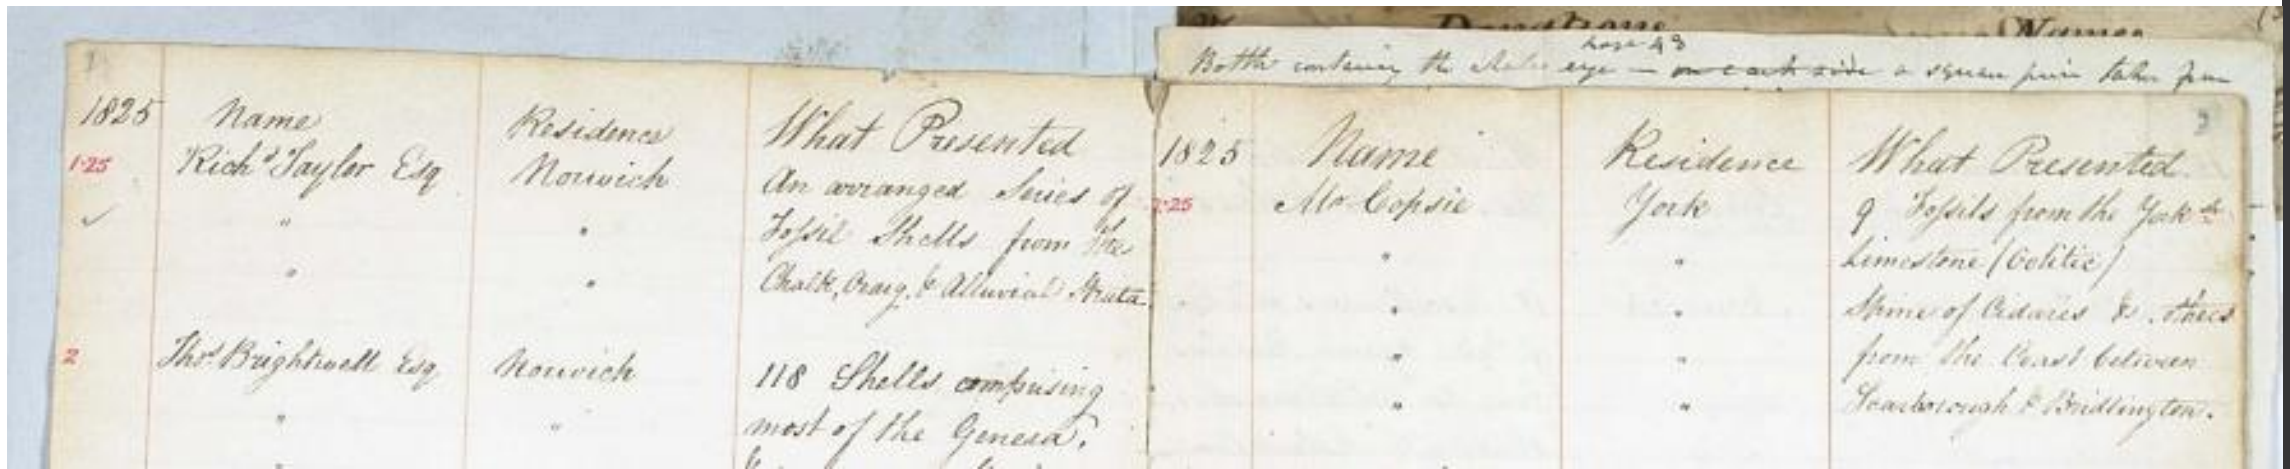 Donations Names
hose 43
Bottle containing the eye — on each side a square pin taken from
1825 Name Residence What Presented
1·25 Richd Taylor Esq Norwich An arranged Series of
" " Fossil Shells from the
" " Chalk, Craig, & Alluvial Strata.
2 Thos Brightwell Esq Norwich 118 Shells comprising
" " most of the Genera.
1825 Name Residence What Presented
2·25 Mr Copsie York 9 Fossils from the York
" " Limestone (Oolitic)
" " Spine of Cidaris & others
" " from the Coast between
" " Scarborough & Bridlington.